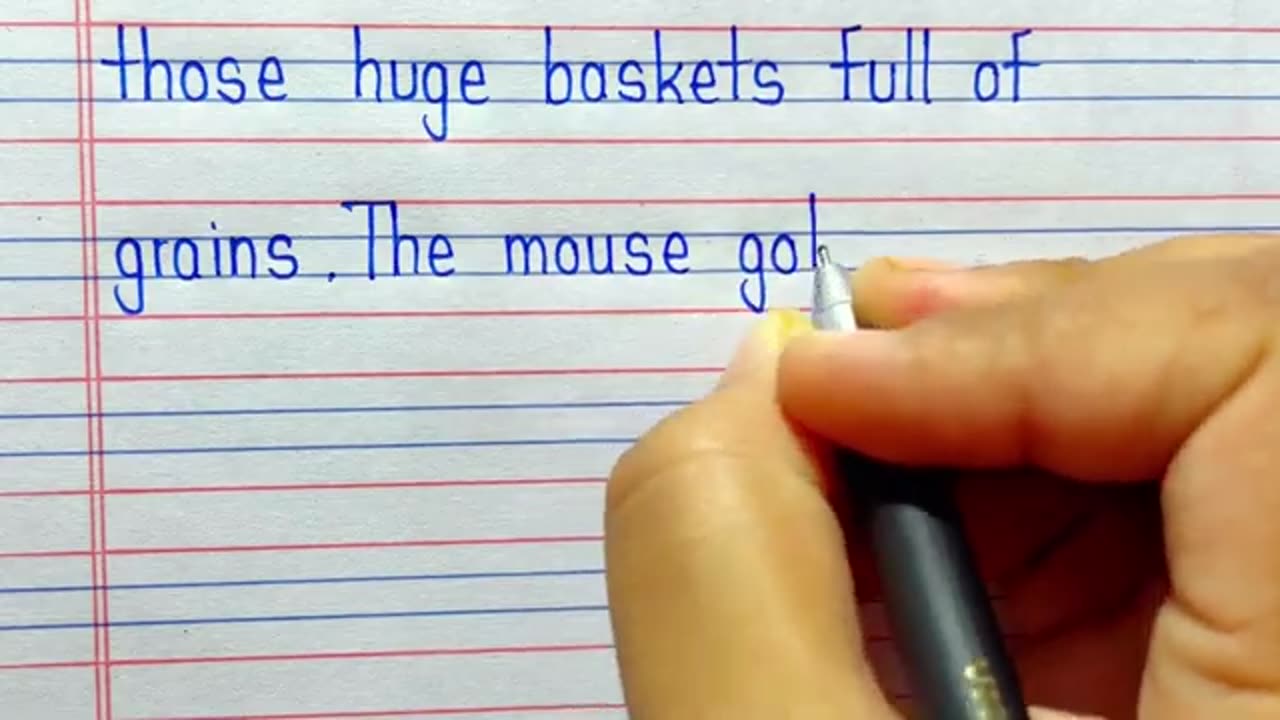 those huge baskets full of
grains. The mouse